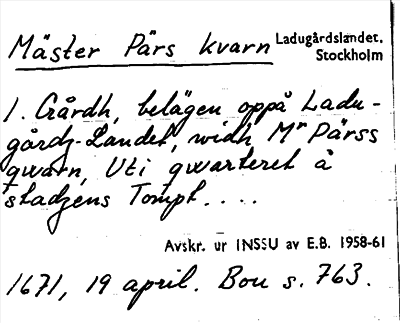 Mäster Pärs kvarn
Ladugårdslandet,
Stockholm
1. Gårdh, belägen oppå Ladu-
gårdz-Landet, widh Mr Pärss
qwarn, Uti qwarteret å
stadzens Tompt....
Avskr. ur INSSU av E.B. 1958-61
1671, 19 april. Bou s. 763.